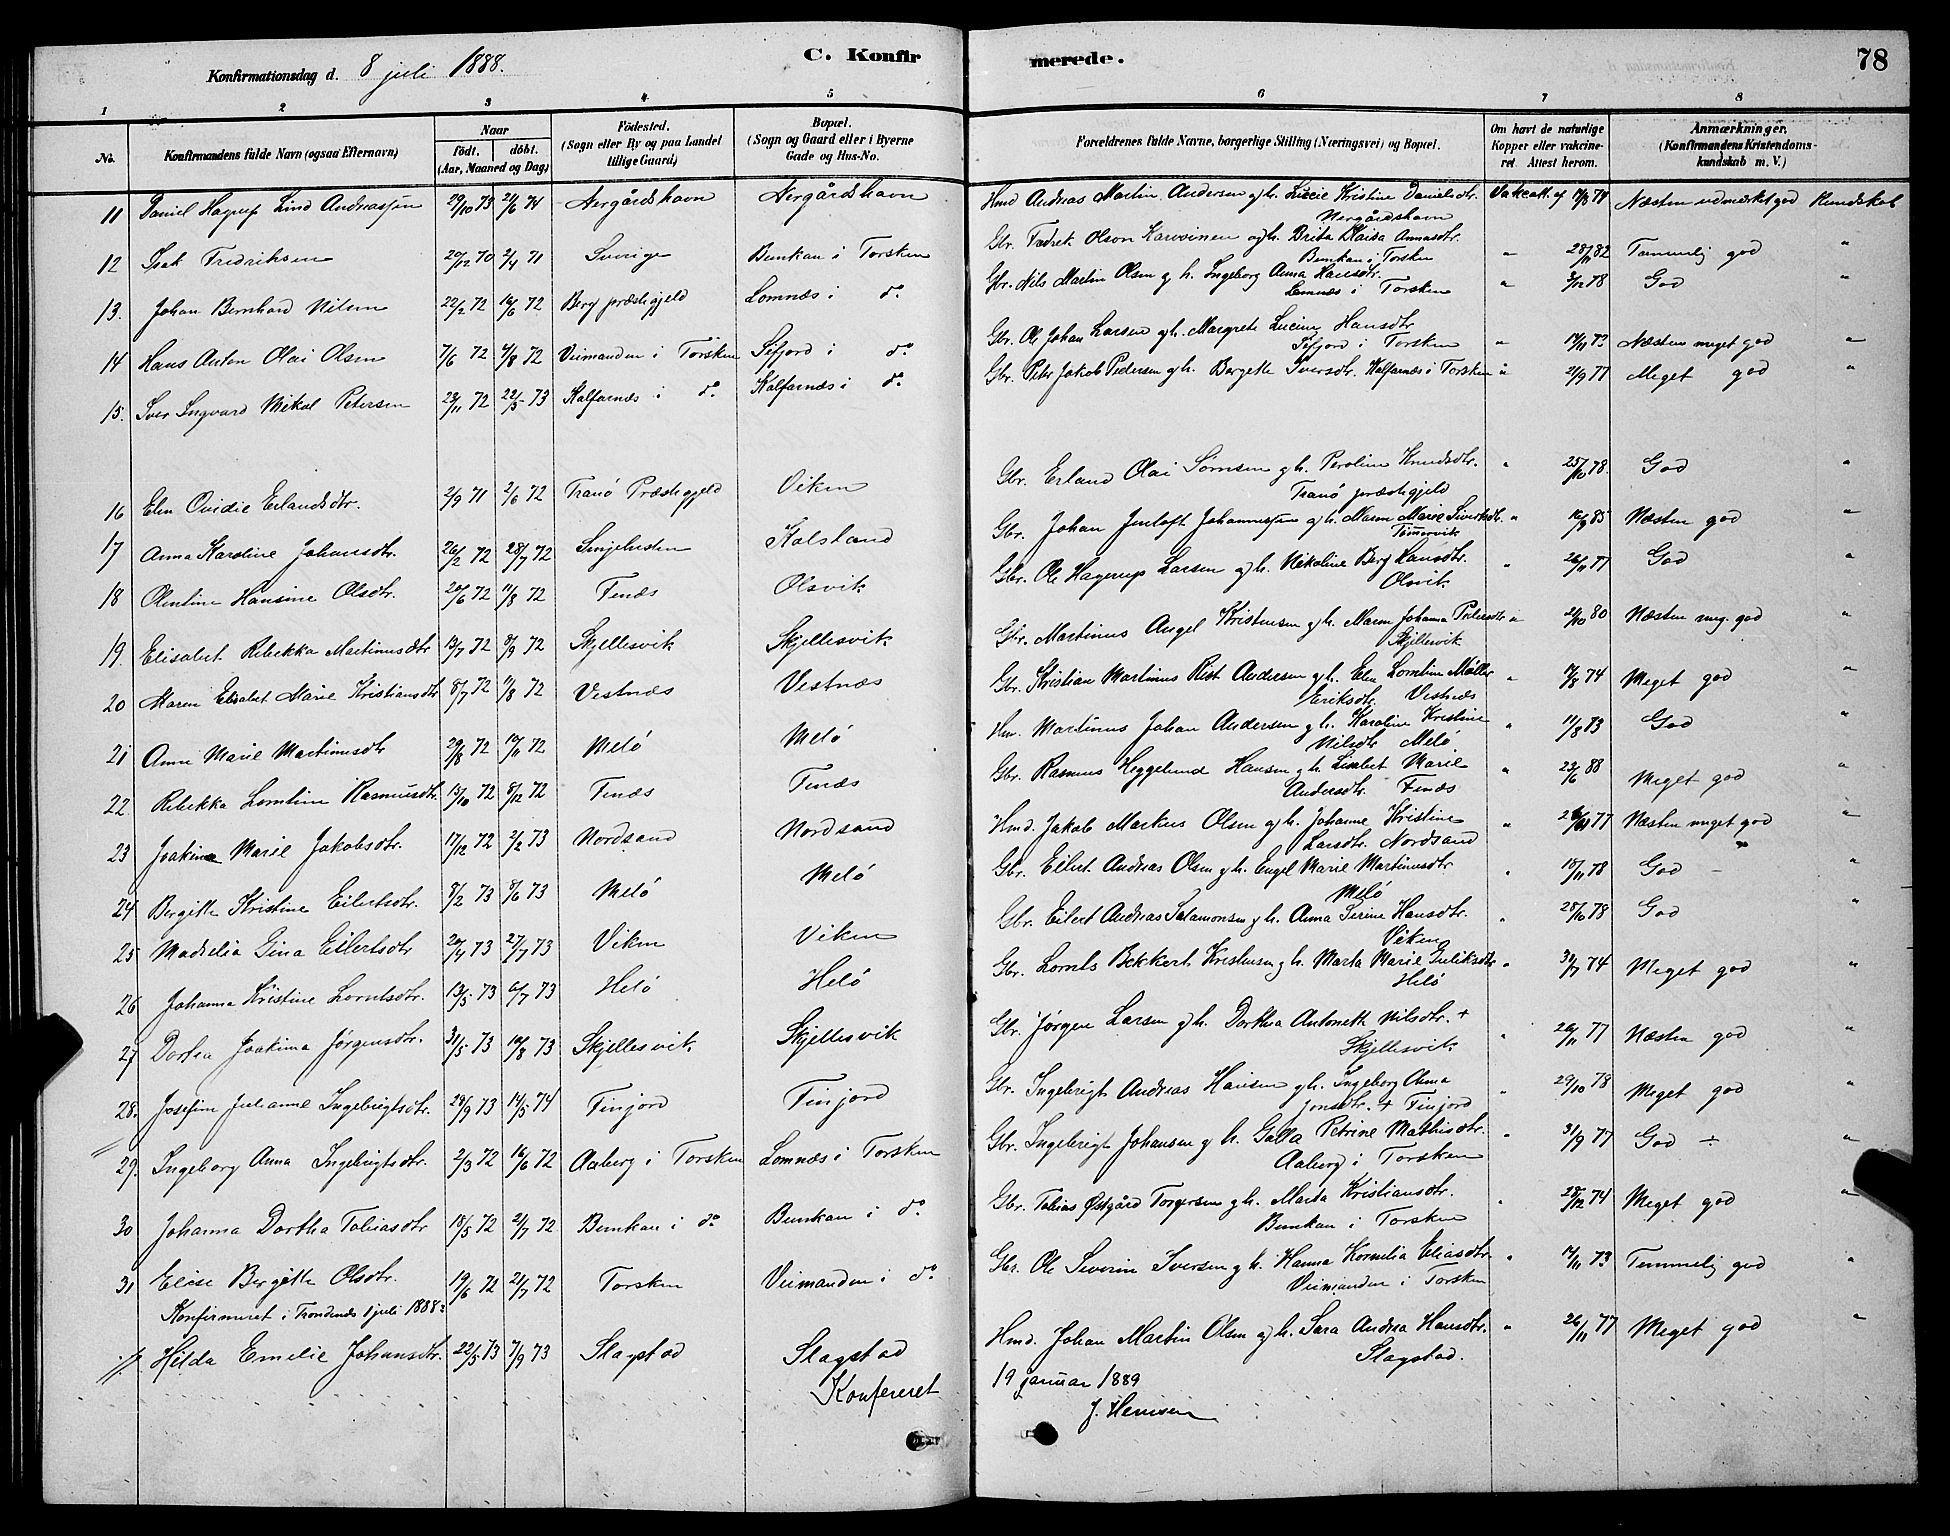 Konfirmationsdag d. 8 juli 1888. C. Konfirmerede. 78
1 2 3 4 5 6 7 8
No. Konfirmandens fulde Navn (ogsaa Efternavn) Naar födt. döbt. (Aar, Maaned og Dag) Födested. (Sogn eller By og paa Landet tillige Gaard) Bopæl. (Sogn og Gaard eller i Byerne Gade og Hus-No. Forældrenes fulde Navne, borgerlige Stilling (Næringsvei) og Bopæl. Om havt de naturlige Kopper eller vakcineret. Attest herom. Anmærkninger. (Konfirmandens Kristendomskundskab m. V.)
11 Daniel Hagrup Lind Andreassen 29/10 73 21/6 74 Nergårdshavn Nergårdshavn Hmd Andreas Martin Andersen og h. Lucie Kristine Danielsdtr. Vakcatt. af 17/8 74 Næsten udmærket god Kundskab
Nergårdshavn
12 Isak Fredriksen 20/12 70 2/4 71 Sverige Bunkan i Torsken Gbr. Fredrik Olson Karvoinen og h. Brita Kaisa Annasdtr. " 28/1 82 Temmelig god "
Bunkan i Torsken
13. Johan Bernhard Nilsen 22/2 72 16/6 72 Berg præstegjeld Lomnæs i do. Gbr. Nils Martin Olsen og h. Ingeborg Anna Hansdtr. " 3/12 78 God "
Lomnæs i Torsken
14 Hans Anton Olai Olsen 7/6 72 4/8 72 Veimanden i Torsken Sifjord i do. Gbr. Ole Johan Larsen og h. Margrete Lucine Hansdtr " 17/11 73 Næsten meget god "
Sifjord i Torsken
15. Iver Ingvard Mikal Petersen 23/11 72 22/5 73 Kalfarnæs i do. Kalfarnæs i do. Gbr. Peter Jakob Pedersen og h. Bergitte Iversdtr. Kalfarnæs i Torsken " 21/9 77 Meget god "
16 Elen Ovidie Erlandsdtr. 2/9 71 2/6 72 Tranö Præstegjeld Viken Gbr. Erland Olai Sörensen og h. Peroline Knudsdtr. " 25/10 78. God "
Tranö præstegjeld
17 Anna Karoline Johansdtr. 26/2 72 28/7 72 Kalsland Gbr. Johan Jenloft Johannessen og h. Maren Marie Sivertsdtr. " 16/8 85 Næsten god "
Tömmervik
18 Olentine Hansine Olsdtr. 20/6 72 11/8 72 Fenæs Olsvik Gbr. Ole Hagerup Larsen og h. Nikoline Berg Hansdtr. " 26/11 77 God "
Olsvik
19. Elisabet Rebekka Martinusdtr 13/7 72 8/9 72 Skjellesvik Skjellesvik Gbr. Martinus Angel Kristensen og h. Maren Johanna Pedersdtr " 21/10 80 Næsten meg. god "
Skjellesvik
20 Maren Elisabet Marie Kristiansdtr 8/7 72 11/8 72 Vestnæs Vestnæs Gbr. Kristian Martinus Rist Andersen og h. Elen Lorntine Möller " 17/8 74 Meget god "
Eriksdtr. Vestnæs
21 Anne Marie Martinusdtr 29/8 72 17/11 72 Melö Melö Hm. Martinus Johan Andersen og h. Karoline Kristine " 11/8 73 God "
Nilsdtr Melö
22 Rebekka Lorntine Rasmusdtr. 15/10 72 8/12 72 Fenæs Fenæs Gbr. Rasmus Heggelund Hansen og h. Lisabet Marie " 23/6 88 Meget god "
Andersdtr. Fenæs
23 Joakima Marie Jakobsdtr. 17/12 72 2/2 73 Nordsand Nordsand Hmd. Jakob Markus Olsen og h. Johanne Kristine " 77 Næsten meget god "
Larsdtr. Nordsand
24 Bergitte Kristine Eilertsdtr. 8/2 73 8/6 73 Melö Melö Gbr. Eilert Andreas Olsen og h. Engel Marie Martinusdtr " 15/11 78 God "
Melö
25 Madselia Gina Eilertsdtr 20/4 73 27/7 73 Viken Viken Gbr. Eilert Andreas Salamonsen og h. Anna Serine Hansdtr. " 28/10 78 God "
Viken
26 Johanna Kristine Lorntsdtr. 13/5 73 6/7 73 Helö Helö Gbr. Lornts Bekkert Kristensen og h. Marta Marie Guliksdtr " 30/7 74 Meget god "
Helö
27 Dortea Joakima Jörgensdtr. 31/5 73 10/8 73 Skjellesvik Skjellesvik Gbr. Jörgen Larsen og h. Dorthea Antonette Nilsdtr. + " 26/11 77 Næsten god "
Skjellesvik
28. Josefine Julianne Ingebrigtsdtr. 29/9 73 14/5 74 Finjord Finjord Gbr. Ingebrigt Andreas Hansen og h. Ingeborg Anna " 29/10 78 Meget god "
Jonsdtr. + Finjord
29. Ingeborg Anna Ingebrigtsdtr. 2/3 72 16/6 72 Aaberg i Torsken Lomnæs i Torsken Gbr. Ingebrigt Johansen og h. Galla Petrine Mathisdtr. " 31/9 77 God ÷ "
Aaberg i Torsken
30 Johanna Dorthea Tobiasdtr 18/5 72 2/7 72 Bunkan i do Bunkan i do. Gbr. Tobias Østgård Torgersen og h. Marta Kristiansdtr. " 28/12 74 Meget god "
Bunkan i Torsken
31 Elise Bergitte Olsdtr. 19/6 72 21/7 72 Torsken Veimanden i do. Gbr. Ole Severin Iversen og h. Hanna Kornelia Eliasdtr " 17/11 73 Temmelig god "
Veimanden i Torsken
Konfirmeret i Trondenes 1 juli 1888:
Hilda Emelie Johansdtr. 22/5 73 7/9 73 Slagstad Slagstad Hmd. Johan Martin Olsen og h. Sara Andrea Hansdtr. " 26/11 77 Meget god "
Slagstad.
Konfereret 19 januar 1889